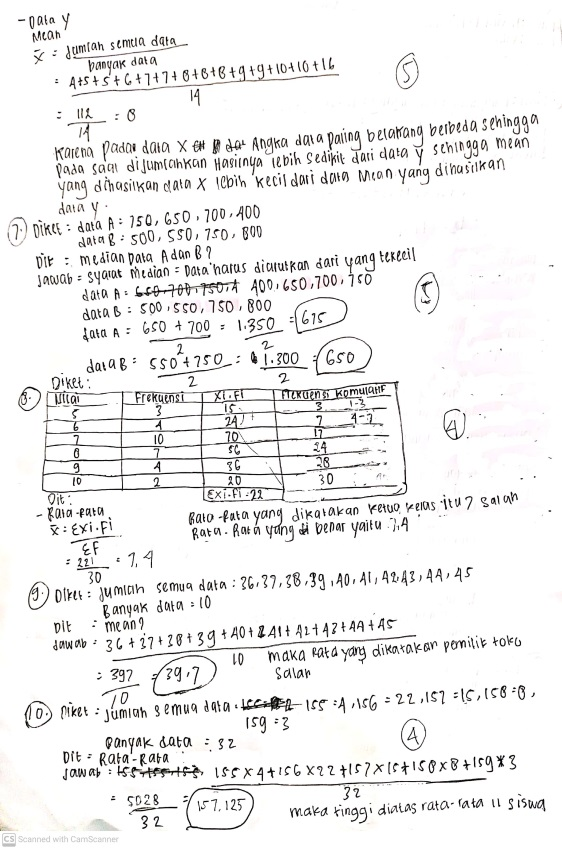 - Data Y
Mean
x̄ = Jumlah semua data
banyak data
= 4+5+5+6+7+7+8+8+8+9+9+10+10+16
14
= 112 = 8
14
5
Karena pada data X Angka data paling belakang berbeda sehingga
pada saat dijumlahkan Hasilnya lebih sedikit dari data y sehingga mean
yang dihasilkan data X lebih kecil dari data Mean yang dihasilkan
data y.
7. Diket : data A = 750, 650, 700, 400
data B = 500, 550, 750, 800
Dit : median Data A dan B ?
Jawab = syarat median = Data harus diurutkan dari yang terkecil
data A = 650, 700, 750, 4 400, 650, 700, 750
data B = 500, 550, 750, 800
5
data A = 650 + 700 = 1.350 = 675
2 2
data B = 550 + 750 = 1.300 = 650
2 2
8. Diket :
Nilai Frekuensi Xi.Fi Frekuensi Komulatif
5 3 15 3 1-3
6 4 24 7 4-7
7 10 70 17
8 7 56 24
9 4 36 28
10 2 20 30
ΣXi.Fi = 22
4
Dit :
- Rata-rata
x̄ = ΣXi.Fi
ΣF
= 221 = 7,4
30
Rata-Rata yang dikatakan ketua kelas itu 7 salah
Rata-Rata yang benar yaitu 7,4
9. Diket = Jumlah semua data : 36, 37, 38, 39, 40, 41, 42, 43, 44, 45
Banyak data = 10
Dit = mean?
Jawab = 36 + 37 + 38 + 39 + 40 + 41 + 42 + 43 + 44 + 45
10
= 397 = 39,7
10
maka Rata yang dikatakan pemilik toko
salah
10. Diket = jumlah semua data = 155 = 4, 156 = 22, 157 = 15, 158 = 8,
159 = 3
Banyak data = 32
4
Dit = Rata-Rata
Jawab = 155 × 4 + 156 × 22 + 157 × 15 + 158 × 8 + 159 × 3
32
= 5028 = 157,125
32
maka tinggi diatas rata-rata 11 siswa
CS Scanned with CamScanner